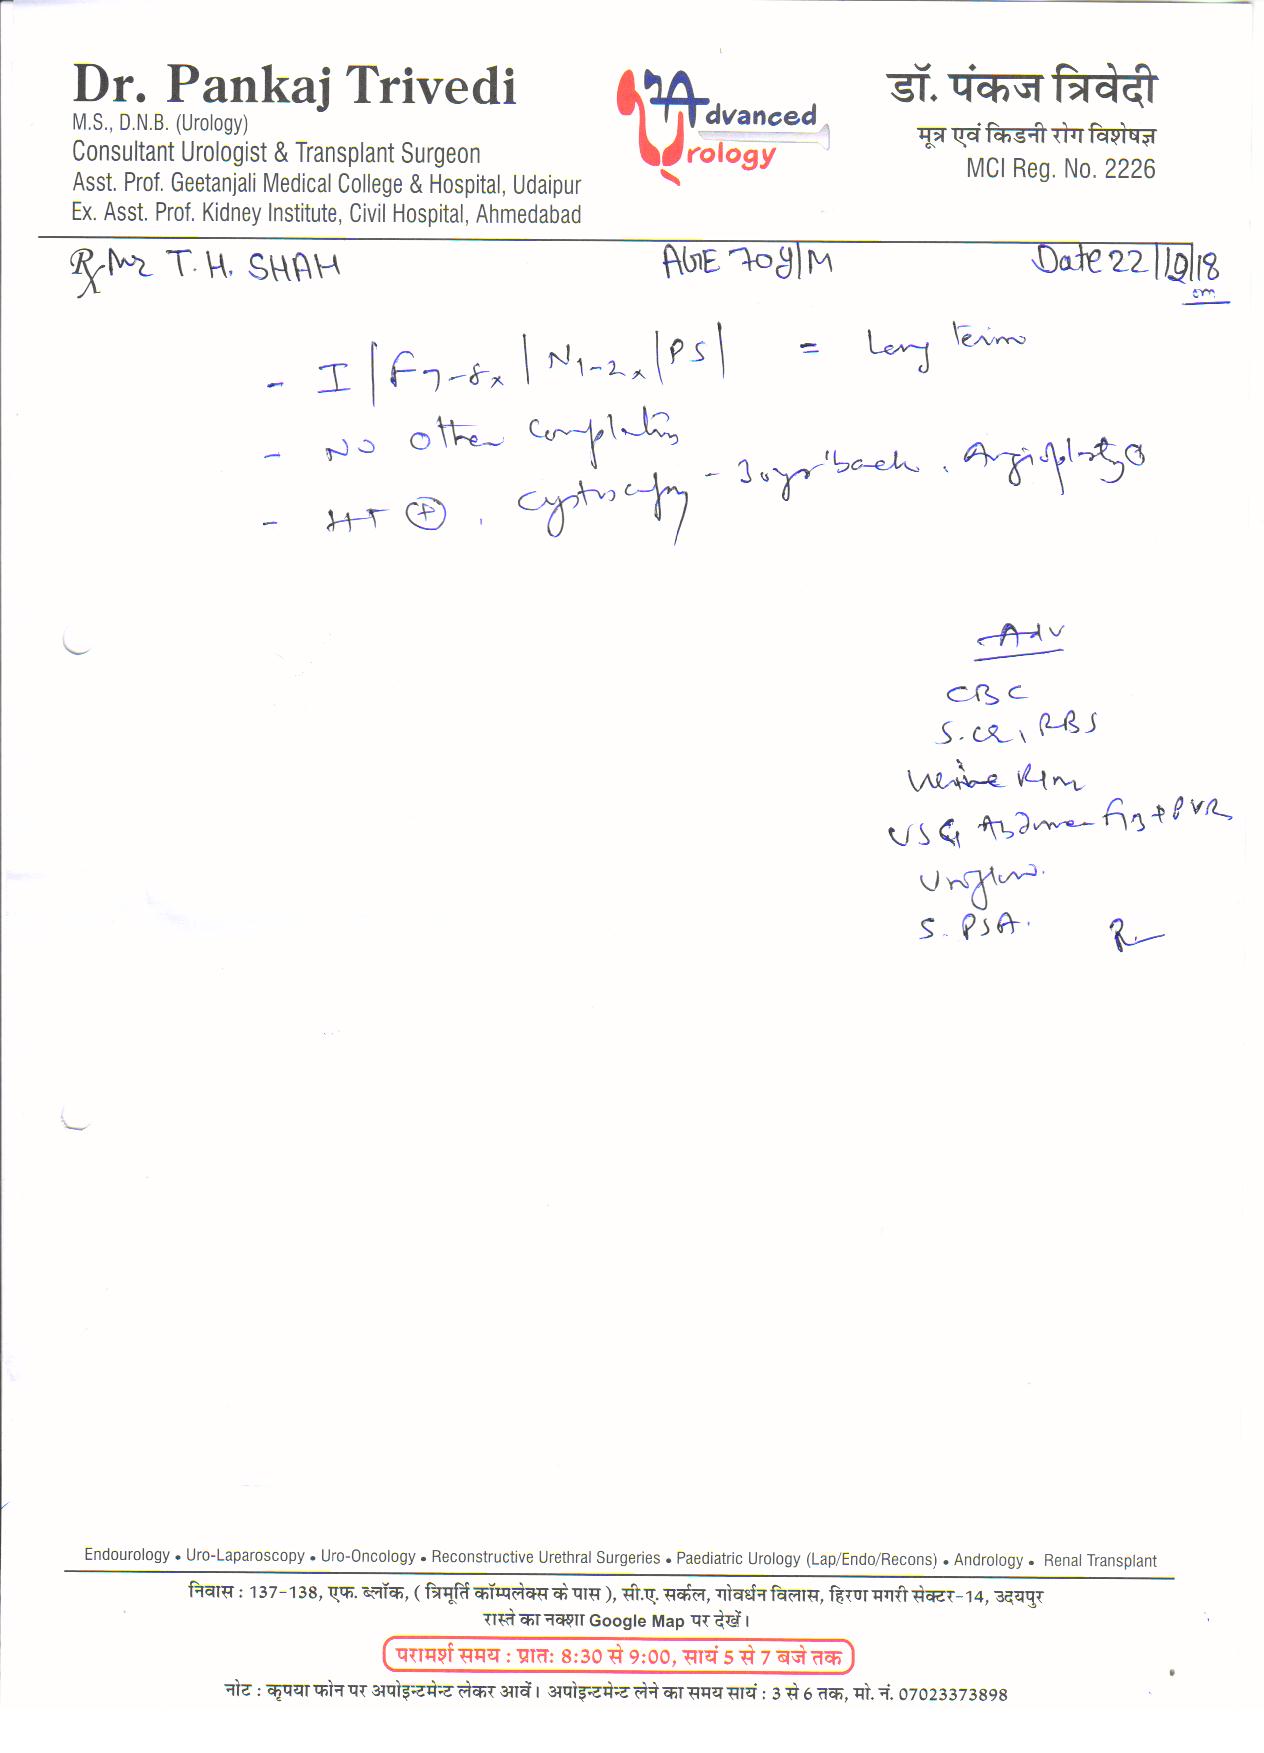 Dr. Pankaj Trivedi
M.S., D.N.B. (Urology)
Consultant Urologist & Transplant Surgeon
Asst. Prof. Geetanjali Medical College & Hospital, Udaipur
Ex. Asst. Prof. Kidney Institute, Civil Hospital, Ahmedabad
Advanced
Urology
डॉ. पंकज त्रिवेदी
मूत्र एवं किडनी रोग विशेषज्ञ
MCI Reg. No. 2226
Rx Mr T. H. SHAH AGE 70y/M Date 22/10/18
- I | F7-8x | N1-2x | PS | = Long term
- No other complaints
- HT ⊕ . Cystoscopy - 30yr back . Angioplasty
Adv
CBC
S. CR, RBS
Urine R/m
USG Abdomen + PVR
Uroflow.
S. PSA.
Endourology • Uro-Laparoscopy • Uro-Oncology • Reconstructive Urethral Surgeries • Paediatric Urology (Lap/Endo/Recons) • Andrology • Renal Transplant
निवास : 137-138, एफ. ब्लॉक, ( त्रिमूर्ति कॉम्पलेक्स के पास ), सी.ए. सर्कल, गोवर्धन विलास, हिरण मगरी सेक्टर-14, उदयपुर
रास्ते का नक्शा Google Map पर देखें।
परामर्श समय : प्रातः 8:30 से 9:00, सायं 5 से 7 बजे तक
नोट : कृपया फोन पर अपोइन्टमेन्ट लेकर आवें। अपोइन्टमेन्ट लेने का समय सायं : 3 से 6 तक, मो. नं. 07023373898